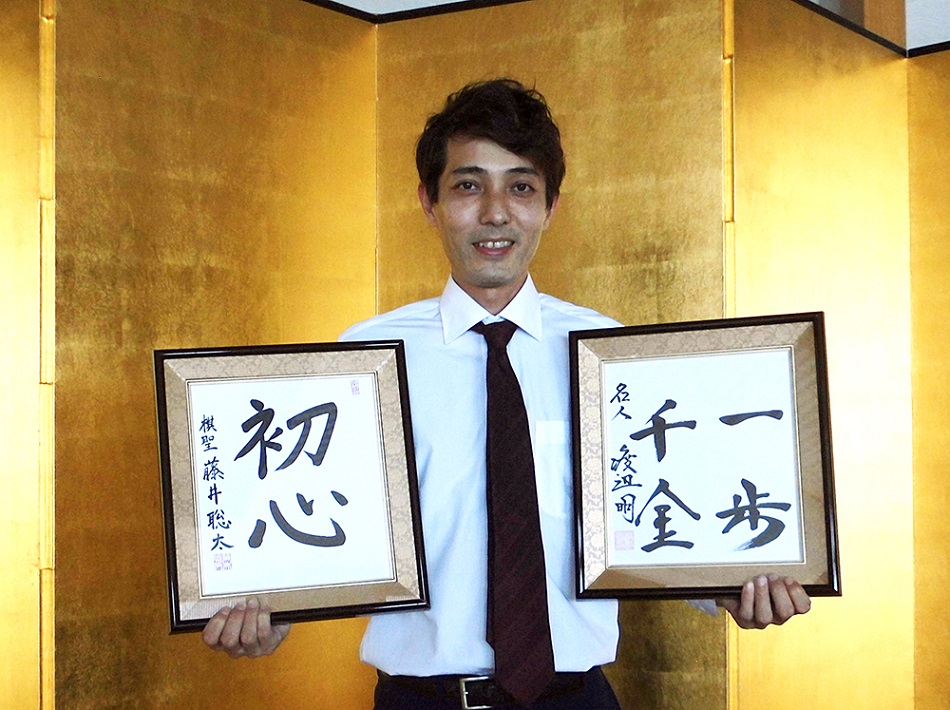 初心
棋聖 藤井聡太
一歩
千金
名人 渡辺明